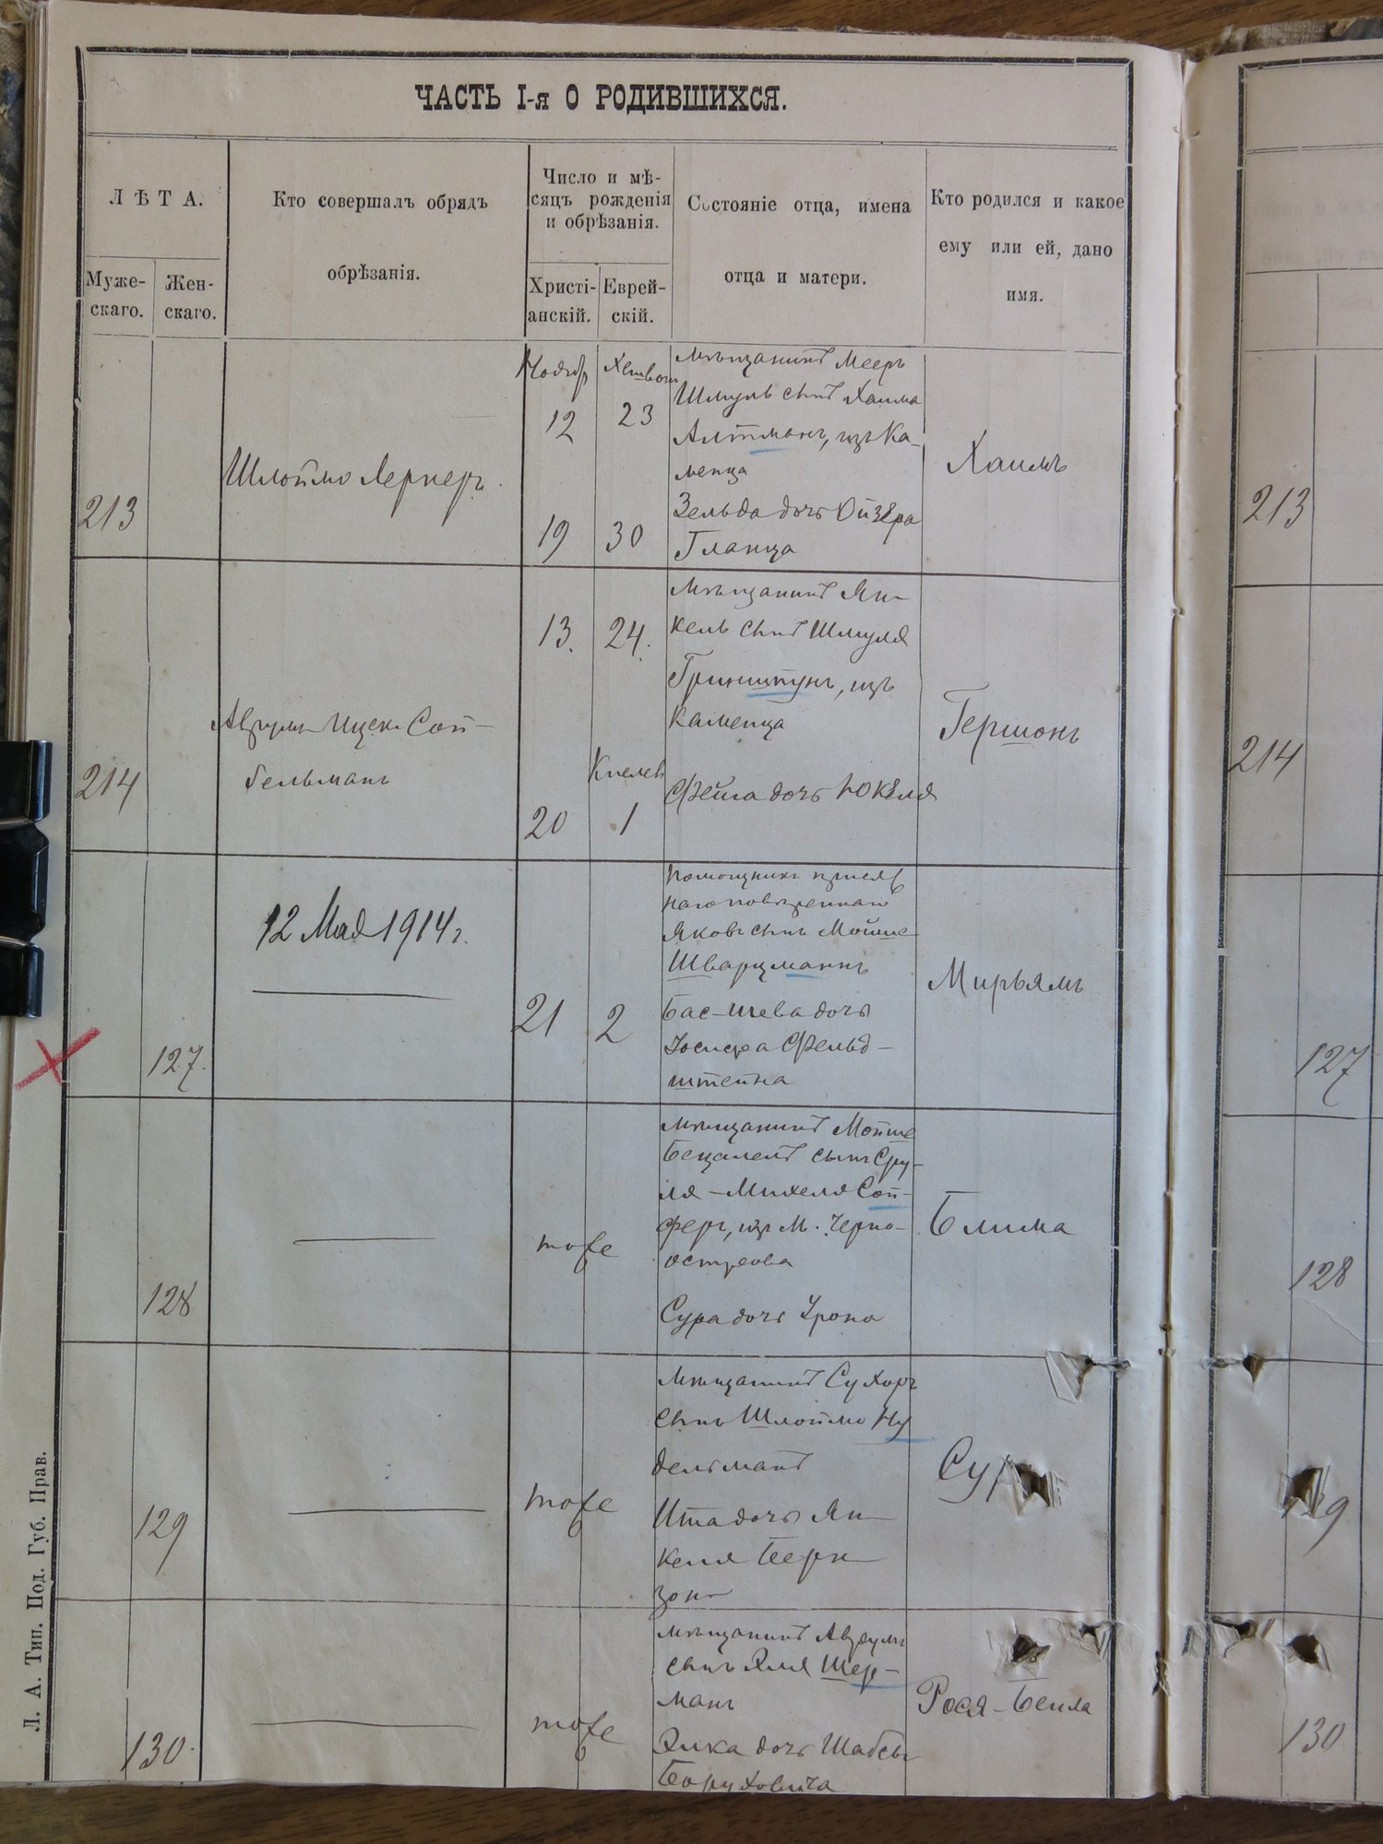 ЧАСТЬ I-я О РОДИВШИХСЯ.
ЛѢТА.
Муже-
скаго.
Жен-
скаго.
Кто совершалъ обрядъ
обрѣзанія.
Число и мѣ-
сяцъ рожденія
и обрѣзанія.
Христі-
анскій.
Еврей-
скій.
Состояніе отца, имена
отца и матери.
Кто родился и какое
ему или ей, дано
имя.
213
Шлоймо Лернеръ.
Ноябр
12
19
Хешван
23
30
Мѣщанинъ Мееръ
Шмуль сынъ Хаима
Алтманъ, изъ Ка-
менца
Зельда дочь Ойзера
Гланца
Хаимъ
213
214
Аврумъ Ицекъ Сой-
бельманъ
13.
20
24.
Кислев
1
Мѣщанинъ Ян-
кель сынъ Шмуля
Гриншпунъ, изъ
Каменца
Фейга дочь Юкеля
Гершонъ
214
127.
12 Мая 1914 г.
21
2
Помощникъ присяж
наго повѣреннаго
Яковъ сынъ Мойше
Шварцманъ
Бас-шева дочь
Иосифа Фельд-
штейна
Мирьямъ
127
128
тоже
Мѣщанинъ Мойше
Бецалелъ сынъ Сру-
ля-Михеля Сой-
феръ, изъ М. Черно-
острова
Сура дочь Урона
Блима
128
129
тоже
Мѣщанинъ Сухоръ
сынъ Шлоймо Ну
дельманъ
Ита дочь Ян-
келя Берн
зон
Сур
9
130.
тоже
Мѣщанинъ Аврумъ
сынъ Эля Шер-
манъ
Элка дочь Шабсы
Боруховича
Рося-Бейла
130
Л. А. Тип. Под. Губ. Прав.